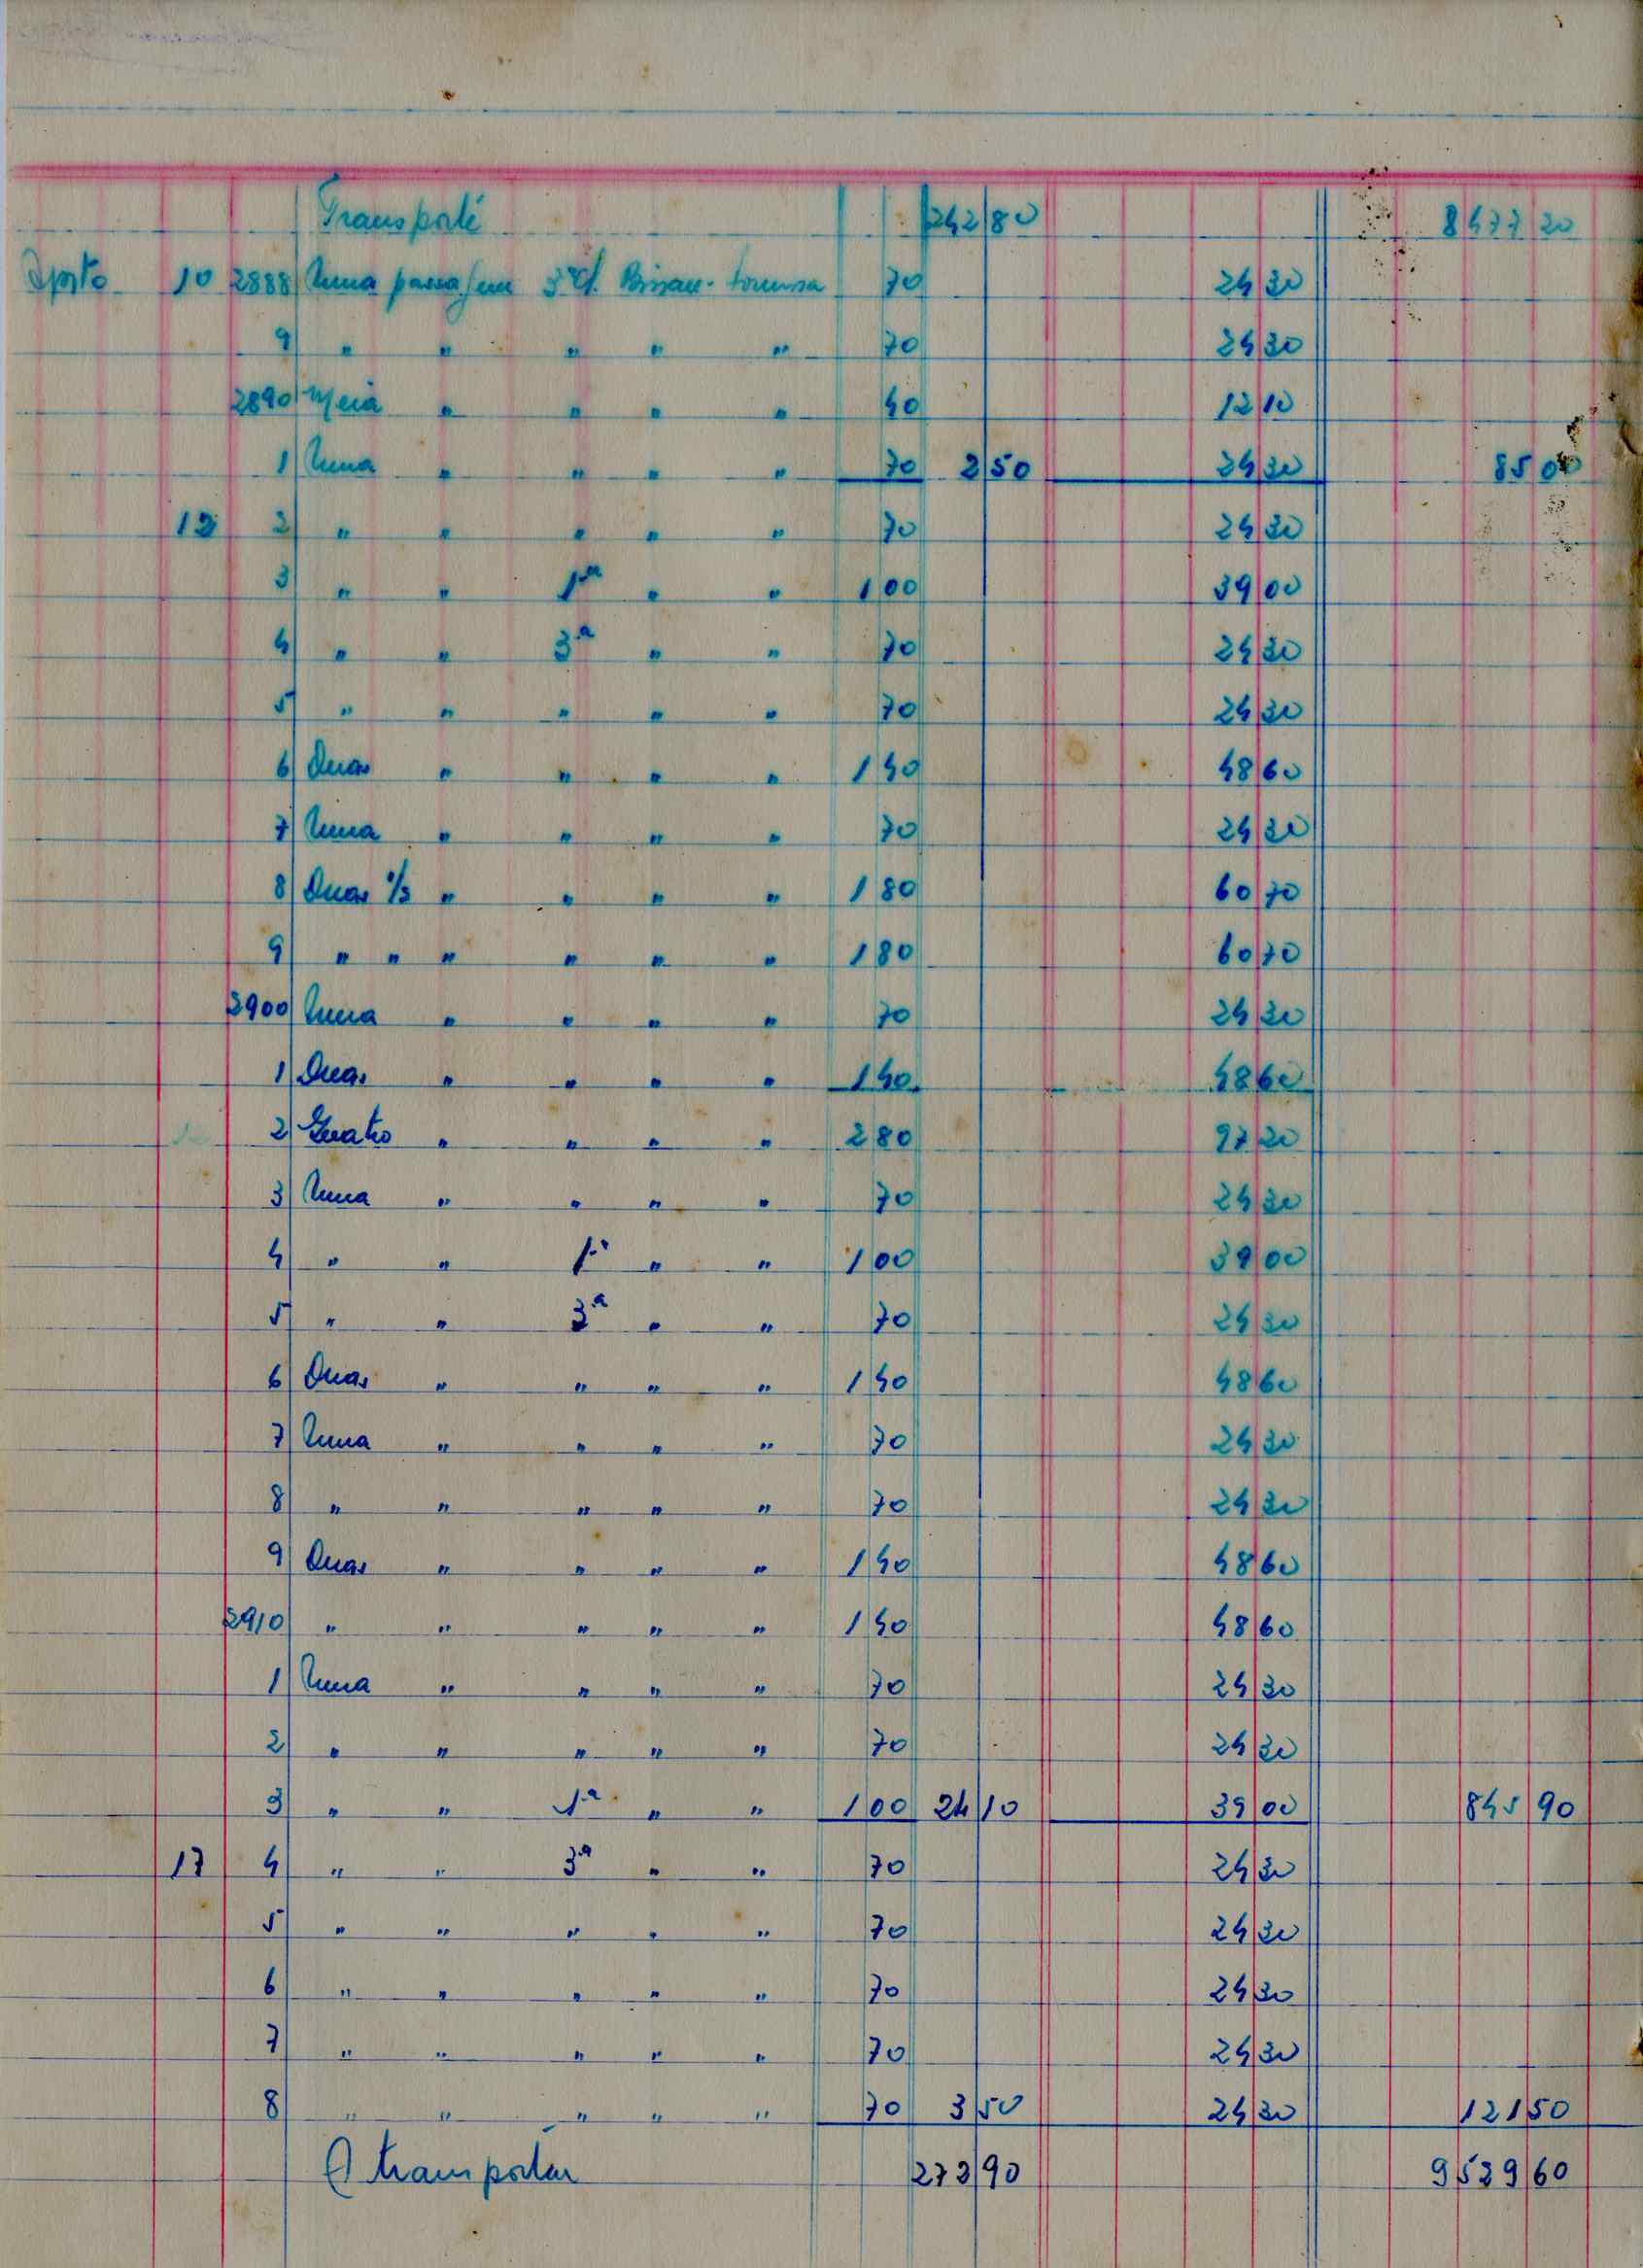 Transporte 242 80 8477 20
Agosto 10 2888 Uma passagem 3ª Cl. Bissau- 70 24 30
9 " " " " " 70 24 30
2890 Meia " " " " 40 12 10
1 Uma " " " " 70 2 50 24 30 85 00
12 2 " " " " " 70 24 30
3 " " 1ª " " 1 00 39 00
4 " " 3ª " " 70 24 30
5 " " " " " 70 24 30
6 Duas " " " " 1 40 48 60
7 Uma " " " " 70 24 30
8 Duas 1/2 " " " " 1 80 60 70
9 " " " " " " 1 80 60 70
2900 Uma " " " " 70 24 30
1 Duas " " " " 1 40 48 60
2 Quatro " " " " 2 80 97 20
3 Uma " " " " 70 24 30
4 " " 1ª " " 1 00 39 00
5 " " 3ª " " 70 24 30
6 Duas " " " " 1 40 48 60
7 Uma " " " " 70 24 30
8 " " " " " 70 24 30
9 Duas " " " " 1 40 48 60
2910 " " " " " 1 40 48 60
1 Uma " " " " 70 24 30
2 " " " " " 70 24 30
3 " " 1ª " " 1 00 24 10 39 00 845 90
17 4 " " 3ª " " 70 24 30
5 " " " " " 70 24 30
6 " " " " " 70 24 30
7 " " " " " 70 24 30
8 " " " " " 70 3 50 24 30 121 50
A transportar 272 90 9529 60